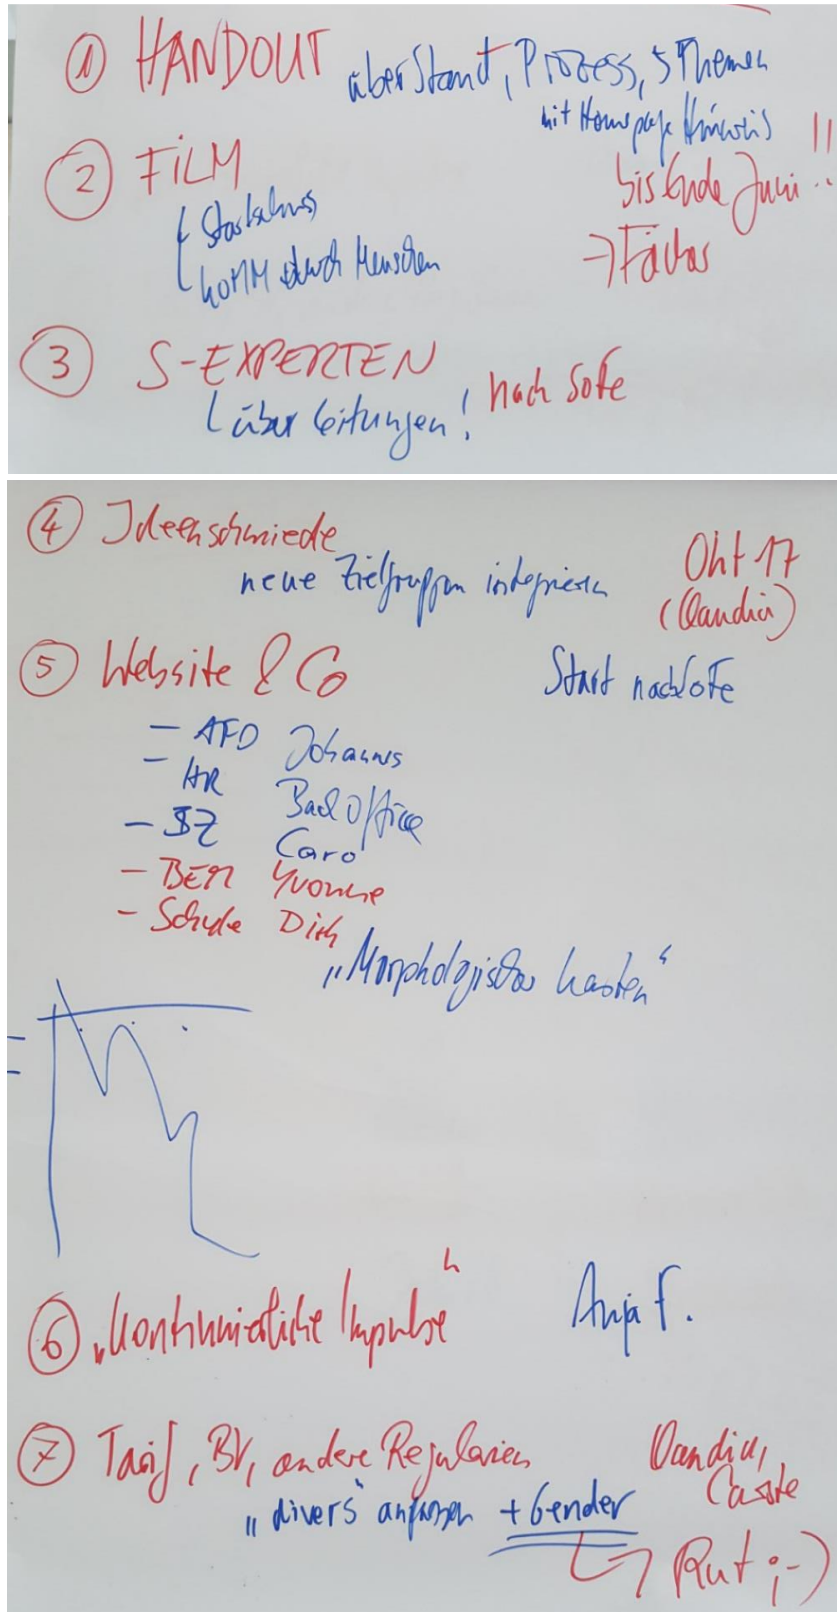 ① HANDOUT über Stand, Prozess, 5 Themen
mit Homepage Hinweis
② FILM bis Ende Juni!!
KOMM durch Menschen → Fächer
③ S-EXPERTEN nach SoFe
über Leitungen!
④ Ideenschmiede
neue Zielgruppen integrieren
Okt 17
(Claudia)
⑤ Website & Co
Start nach SoFe
- AFD Johannes
- HR Back Office
- SZ Caro
- BEM Yvonne
- Schule Dirk
„Morphologischer Kasten“
⑥ „Kontinuierliche Impulse“ Anja F.
⑦ Tarif, BV, andere Regularien Claudia,
„divers“ anfassen + Gender
Rut ;-)